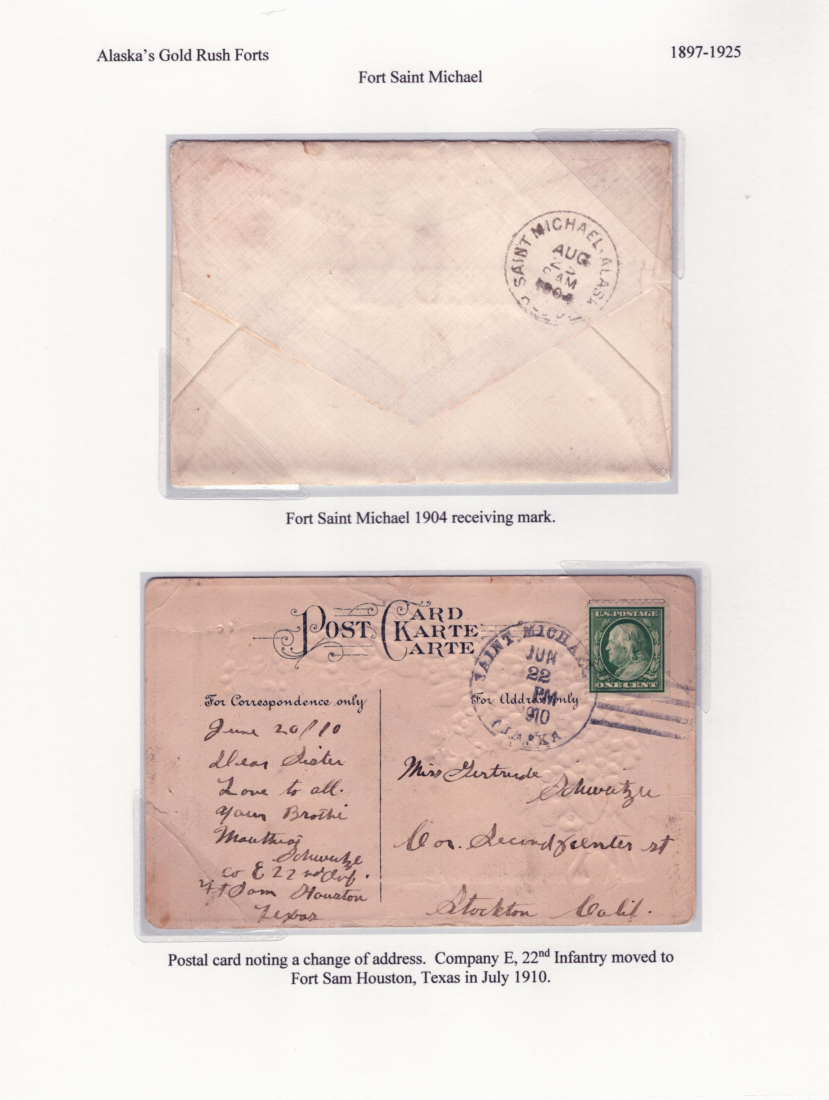 Alaska's Gold Rush Forts
1897-1925
Fort Saint Michael
SAINT MICHAEL · ALASKA
AUG
AM
1904
Fort Saint Michael 1904 receiving mark.
POST CARD
KARTE
CARTE
U.S. POSTAGE
ONE CENT
SAINT MICHAEL
JUN
22
PM
1910
ALASKA
For Correspondence only
For Address only
June 20/10
Dear Sister
Love to all.
your Brother
Schwitze
Co E 22nd Inf.
Ft Sam Houston
Texas
Miss Gertrude
Cor. Second & center st
Stockton Calif.
Postal card noting a change of address. Company E, 22nd Infantry moved to
Fort Sam Houston, Texas in July 1910.